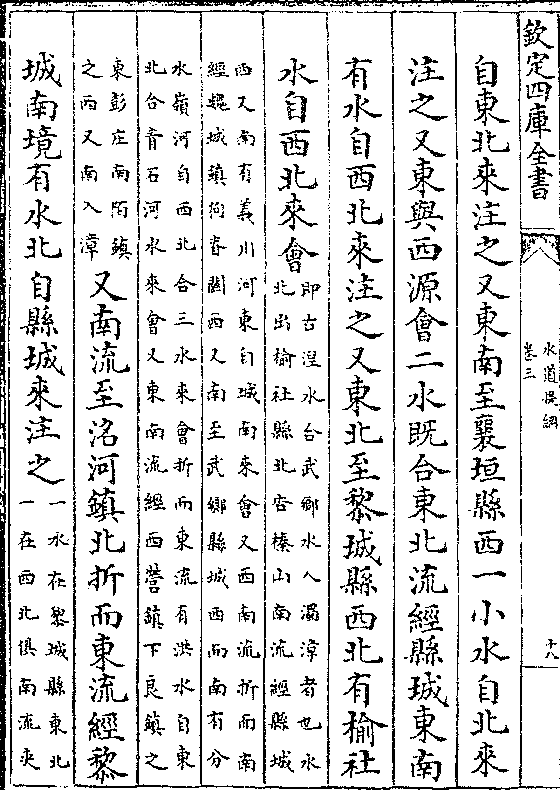 欽定四庫全書
水道提綱
卷三
十八
自東北來注之又東南至襄垣縣西一小水自北來
注之又東與西源會二水既合東北流經縣城東南
有水自西北來注之又東北至黎城縣西北有榆社
水自西北來會
即古涅水合武鄉水入濁漳者也水
北出榆社縣北杏榛山南流經縣城
西又南有義川河東自城南來會又西南流折而南
經魏城鎮關西又南至武鄉縣城西而南有分
水嶺河自西北合三水來會折而東流有洪水自東
北合青石河水來會又東南流經西營鎮下良鎮之
東彭庄南陌鎮
之西又南入漳
又南流至洺河鎮北折而東流經黎
城南境有水北自縣城來注之
一水在黎城縣東北
一在西北俱南流夾